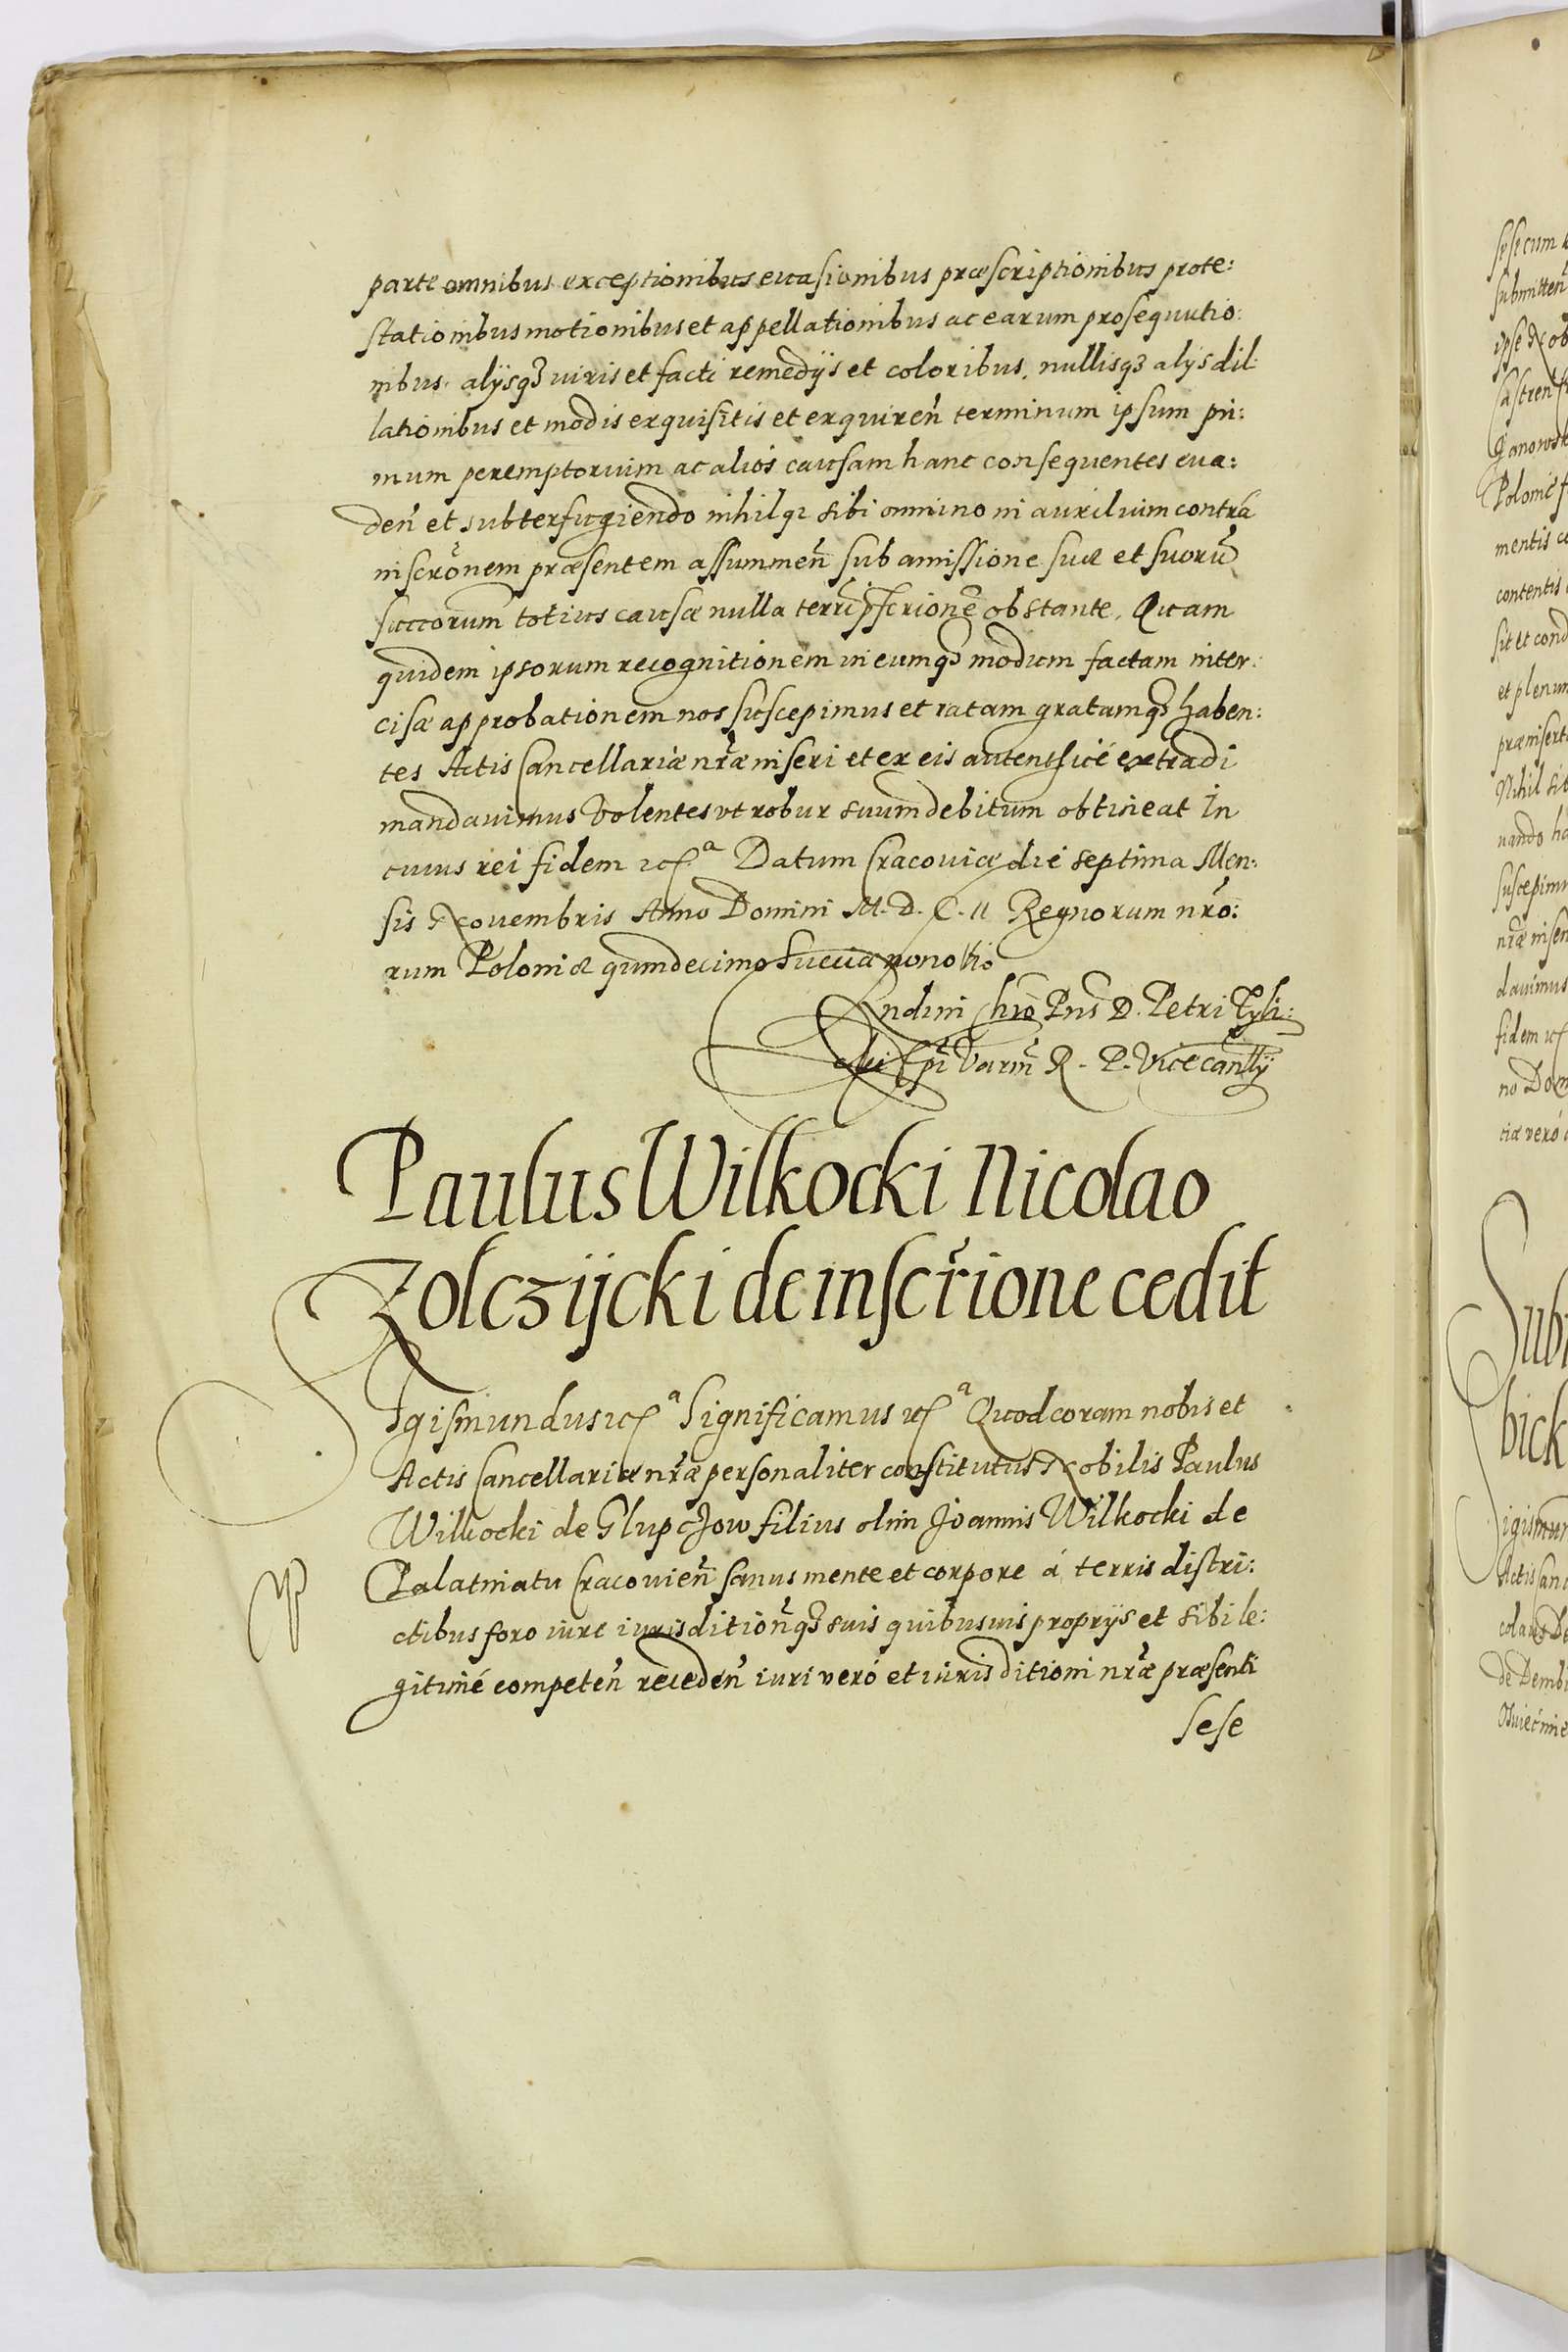 parte omnibus exceptionibus euasionibus præscriptionibus prote:
stationibus motionibus et appellationibus ac earum prosequutio:
nibus alijsqз iuris et facti remedijs et coloribus nullisqз alijs dil:
lationibus et modis exquisitis et exquiren̄ terminum ipsum pri:
mum peremptorium ac alios causam hanc consequentes eua:
den̄ et subterfugiendo nihilqз sibi omnino in auxilium contrá
inscrōnem præsentem assummen̄ sub amissione suæ et suorū
succorum̄ totius causæ nulla terrū pscrione obstante. Quam
quidem ipsorum recognitionem in eumqз modum factam inter:
cisæ approbationem nos suscepimus et ratam gratamqз haben:
tes Actis Cancellariæ nr̄æ inseri et ex eis autenthicé extradi
mandauimus Volentes vt robur suum debitum obtineat In
cuius rei fidem etc.ᵃ Datum Cracouiæ die septima Men:
sis Nouembris Anno Domini M. D. C. II Regnorum nrō:
rum Poloniæ quindecimo Sueciæ nono
Rndini Chrō Pris D. Petri Tyli:
cki Epī Varm̄ R. P. Vicecanllij
Paulus Wilkocki Nicolao
Zolczijcki de inscr̄ione cedit
Sigismundus etc.ᵃ Significamus etc.ᵃ Quod coram nobis et
Actis Cancellariæ nr̄æ personaliter constitutus Nobilis Paulus
Wilkocki de Glupczow filius olim Joannis Wilkocki de
Palatinatu Cracouien̄ sanus mente et corpore á terris distri:
ctibus foro iure iurisdition̄qз suis quibusuis proprijs et sibi le:
gitimé competen̄ receden̄ iuri veró et iurisditioni nr̄æ præsenti
sese
sese cum
submitten̄
ipse Nob
Castren
Polonié
mentis
contentis
sit et cond
et plenum
præinsert
Nihil sib
uando ha
suscepimu
nr̄æ inseri
dauimus
fidem etc
no Dom
tiæ veró
Sub
bick
Sigismun
Actis Canc
colaus De
de Dembi